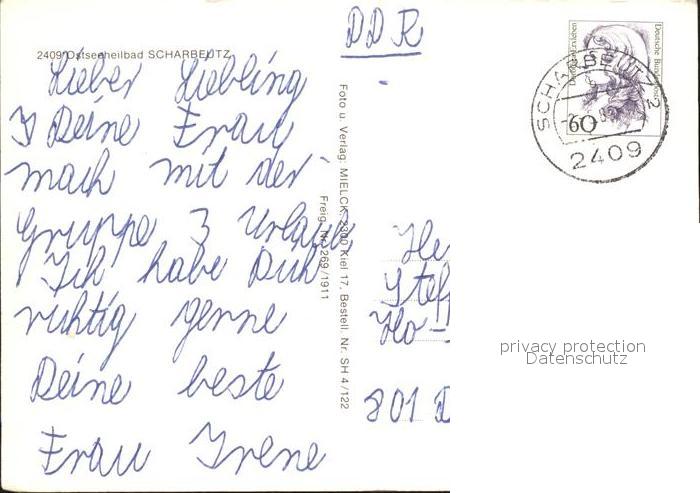 DDR
2409 Ostseeheilbad SCHARBEUTZ
Lieber Liebling
I Deine Frau
mach mit der
Gruppe 3 Urlaub
Ich habe Dich
richtig genne
Deine beste
Frau Irene
Foto u. Verlag: MIELCK, 2300 Kiel 17, Bestell. Nr. SH 4/122
Freig. Nr. 269/1911
Deutsche Bundespost
60
SCHARBEUTZ 2
2409
He
Stef
Ho-
801 D
privacy protection
Datenschutz